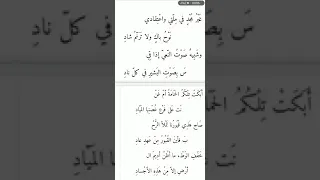 غَيْرُ مُجْدٍ في مِلّتي واعْتِقادي
نَوْحُ باكٍ ولا تَرَنّمُ شادِ
وشَبِيهٌ صَوْتُ النّعيّ إذا قِي
سَ بِصَوْتِ البَشيرِ في كلّ نادِ
أبَكَتْ تِلْكُمُ الحَمَامَةُ أمْ غَنّ
نَت عَلى فَرْعِ غُصْنِها المَيّادِ
صَاحِ هَذِي قُبُورُنا تَمْلأ الرُّحْ
بَ فأينَ القُبُورُ مِنْ عَهدِ عادِ
خَفّفِ الوَطْء ما أظُنّ أدِيمَ ال
أرْضِ إلاّ مِنْ هَذِهِ الأجْسادِ